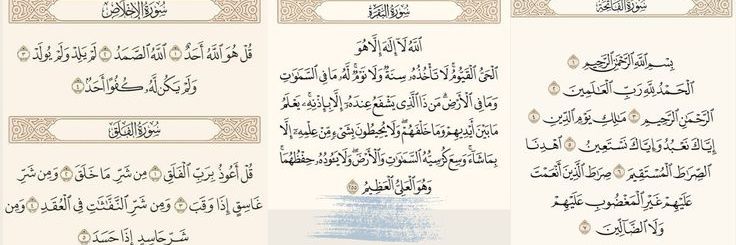 سُورَةُ الفَاتِحَةِ
بِسْمِ ٱللَّهِ ٱلرَّحْمَٰنِ ٱلرَّحِيمِ ١
ٱلْحَمْدُ لِلَّهِ رَبِّ ٱلْعَٰلَمِينَ ٢
ٱلرَّحْمَٰنِ ٱلرَّحِيمِ ٣ مَٰلِكِ يَوْمِ ٱلدِّينِ ٤
إِيَّاكَ نَعْبُدُ وَإِيَّاكَ نَسْتَعِينُ ٥ ٱهْدِنَا
ٱلصِّرَٰطَ ٱلْمُسْتَقِيمَ ٦ صِرَٰطَ ٱلَّذِينَ أَنْعَمْتَ
عَلَيْهِمْ غَيْرِ ٱلْمَغْضُوبِ عَلَيْهِمْ
وَلَا ٱلضَّآلِّينَ ٧
سُورَةُ البَقَرَةِ
ٱللَّهُ لَآ إِلَٰهَ إِلَّا هُوَ
ٱلْحَىُّ ٱلْقَيُّومُ ۚ لَا تَأْخُذُهُۥ سِنَةٌ وَلَا نَوْمٌ ۚ لَّهُۥ مَا فِى ٱلسَّمَٰوَٰتِ
وَمَا فِى ٱلْأَرْضِ ۗ مَن ذَا ٱلَّذِى يَشْفَعُ عِندَهُۥٓ إِلَّا بِإِذْنِهِۦ ۚ يَعْلَمُ
مَا بَيْنَ أَيْدِيهِمْ وَمَا خَلْفَهُمْ ۖ وَلَا يُحِيطُونَ بِشَىْءٍ مِّنْ عِلْمِهِۦٓ إِلَّا
بِمَا شَآءَ ۚ وَسِعَ كُرْسِيُّهُ ٱلسَّمَٰوَٰتِ وَٱلْأَرْضَ ۖ وَلَا يَـُٔودُهُۥ حِفْظُهُمَا ۚ
وَهُوَ ٱلْعَلِىُّ ٱلْعَظِيمُ ٢٥٥
سُورَةُ الإِخْلَاصِ
قُلْ هُوَ ٱللَّهُ أَحَدٌ ١ ٱللَّهُ ٱلصَّمَدُ ٢ لَمْ يَلِدْ وَلَمْ يُولَدْ ٣
وَلَمْ يَكُن لَّهُۥ كُفُوًا أَحَدٌۢ ٤
سُورَةُ الفَلَقِ
قُلْ أَعُوذُ بِرَبِّ ٱلْفَلَقِ ١ مِن شَرِّ مَا خَلَقَ ٢ وَمِن شَرِّ
غَاسِقٍ إِذَا وَقَبَ ٣ وَمِن شَرِّ ٱلنَّفَّٰثَٰتِ فِى ٱلْعُقَدِ ٤ وَمِن
شَرِّ حَاسِدٍ إِذَا حَسَدَ ٥